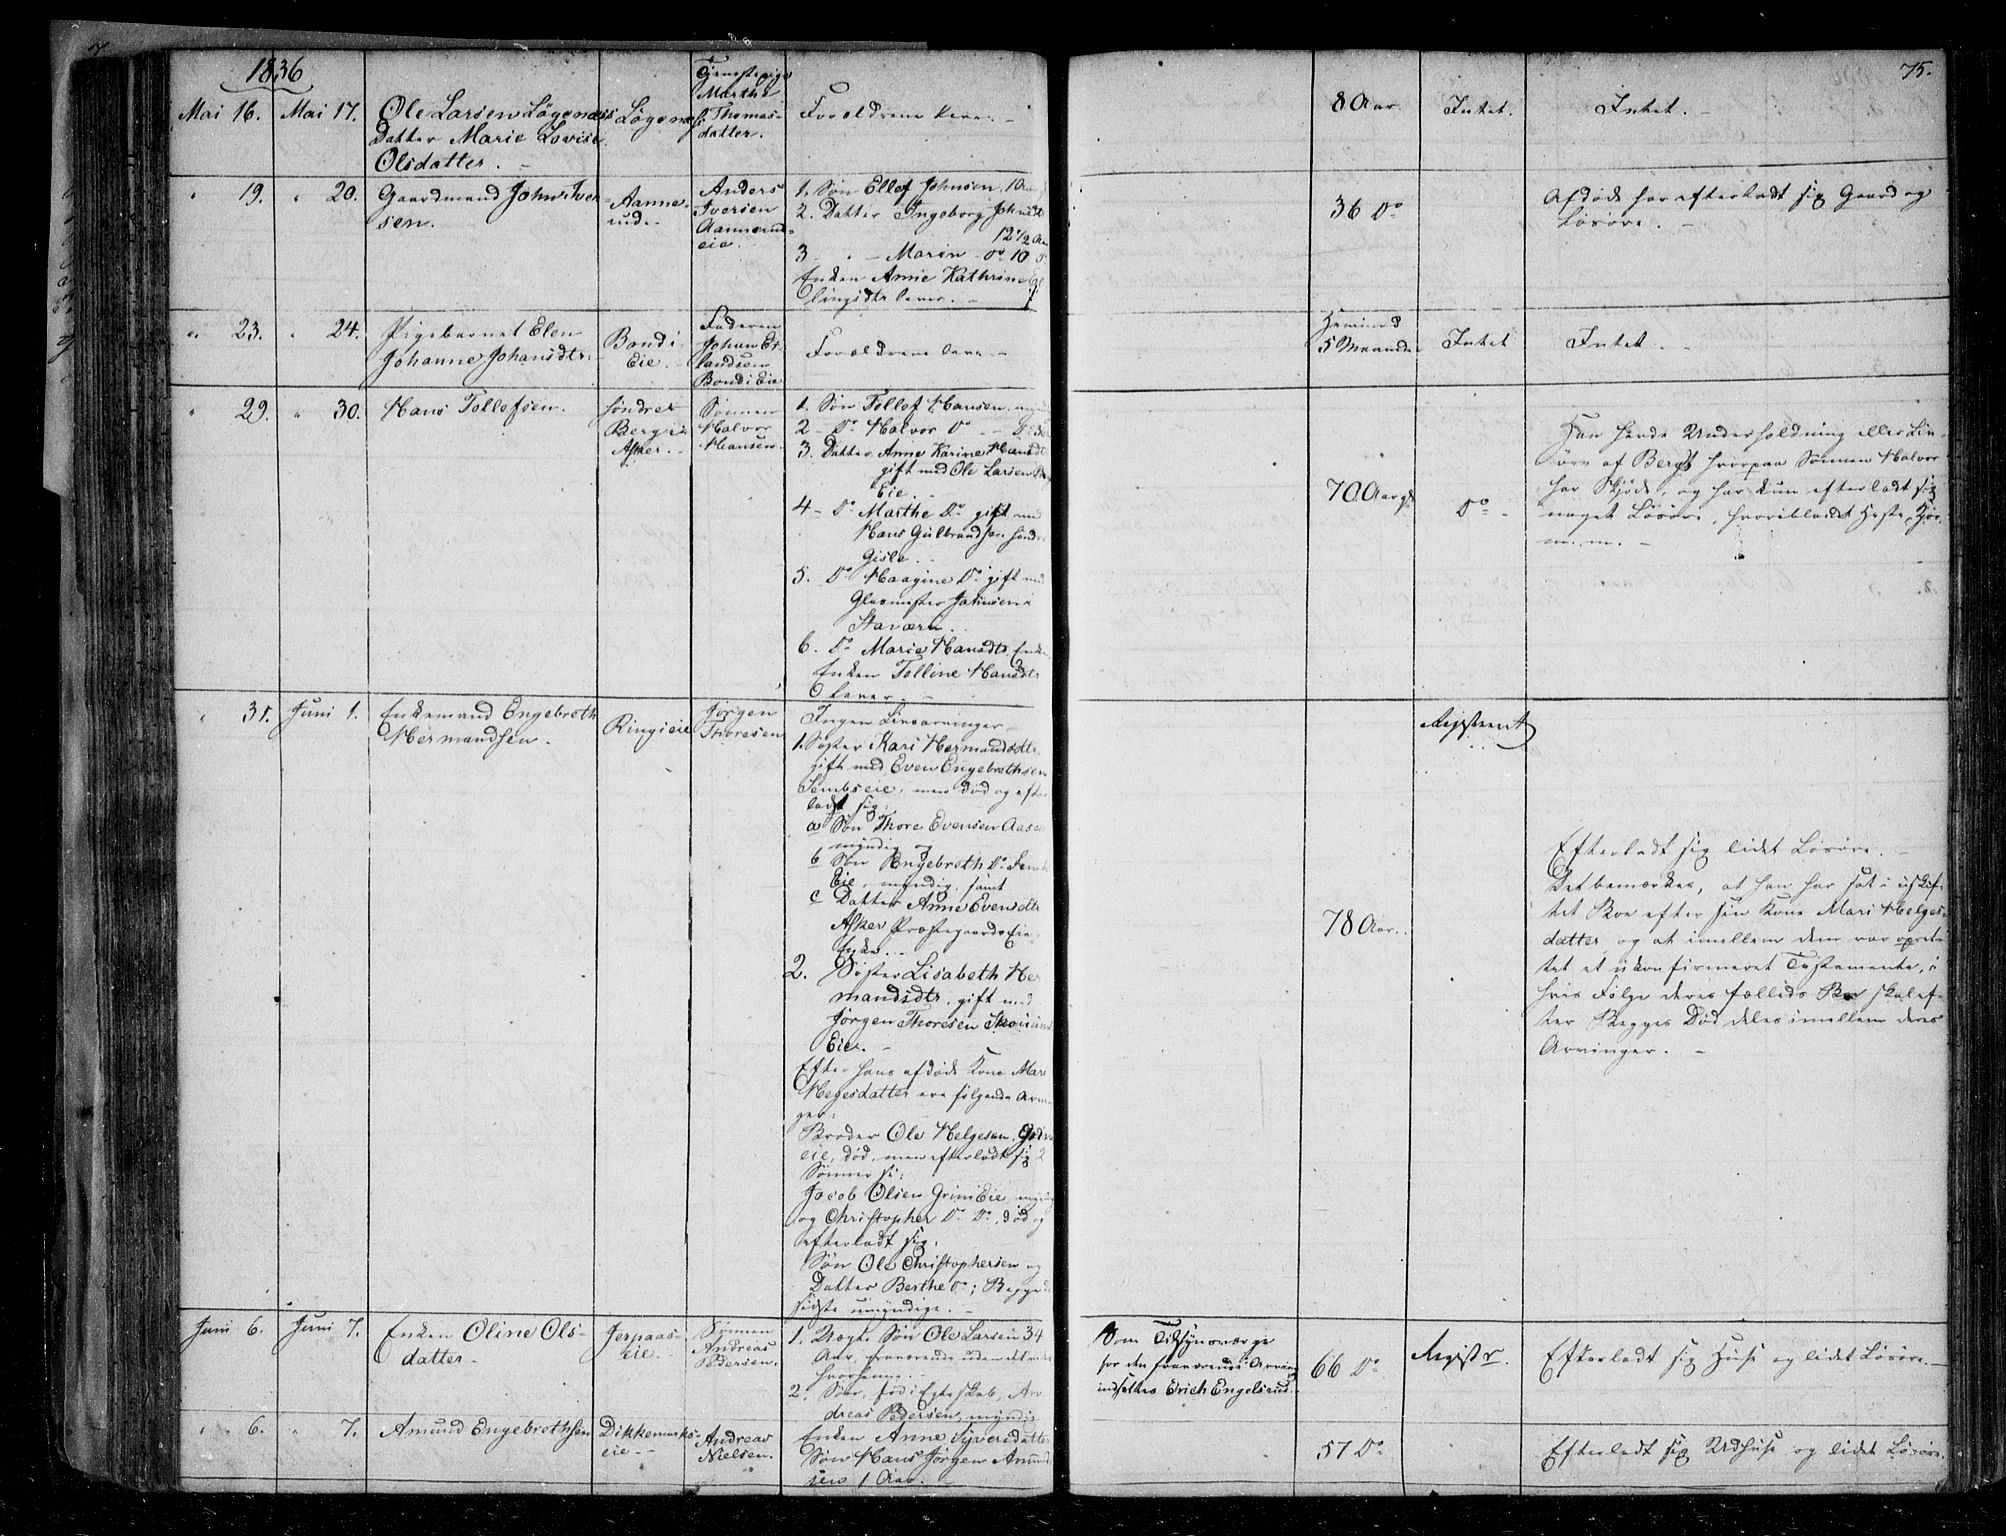 75.
1836
Mai 16. Mai 17. Ole Larsen Løgenæs
Datter Marie Lovise
Olsdatter.
Løgenæs
Tjenestepige
Marthe
Thomas-
datter.
Forældrene leve.
8 Aar.
Intet.
Intet.
" 19. " 20. Gaardmand John Iver
sen.
Aanne-
rud.
Anders
Iversen
Aannerud-
eie.
1. Søn Ellef Johnsen. 10 Aar
2. Datter Ingeborg Johnsdtr
12 1/2 Aar
3 - " - Maren Do 10
Enken Anne Kathrine
lingsdtr lever.
36 Do
Afdøde har efterladt sig Gaard og
Løsøre.
" 23. " 24. Pigebarnet Elen
Johanne Johansdtr.
Bondi
Eie.
Faderen
Johan Er-
landsen
Bondi Eie
Forældrene leve
5 Maaneder
Intet
Intet.
" 29. " 30. Hans Tollefsen.
søndre
Berg i
Asker.
Sønnen
Halvor
Hansen.
1. Søn Tollef Hansen
2 - Do Halvor Do
3. Datter Anne Karine Hansdtr
gift med Ole Larsen
Eie.
4 - Do Marthe Do gift med
Hans Gulbrandsen søndre
Gisle.
5. Do Haagine Do gift med
Glasmester Johnsen i
Staværn.
6. Do Marie Hansdtr. Enke
Enken Tolline Hansdtr
lever.
70 Aar gl
Do
Han havde Underholdning eller Liv-
øre af Berg, hvorpaa Sønnen Halvor
har Skjøde, og har kun efterladt sig
noget Løsøre, hvoriblandt Heste, Kjør
m. m.
" 31. Juni 1. Enkemand Engebreth
Hermandsen.
Ringi eie
Jørgen
Thoresen
Ingen Livsarvinger
1. Søster Kari Hermandsdtr.
gift med Even Engebrethsen
Sembseie, men død og efter
ladt sig:
a Søn Thore Evensen Aasen
myndig og
b Søn Engebreth Do Sem
Eie, myndig, samt
c Datter Anne Evensdtr
Asker Præstegaards Eie
Enke.
2. Søster Lisabeth Her
mandsdtr. gift med
Jørgen Thoresen
Eie.
Efter hans afdøde Kone Mari
Hegesdatter ere følgende Arvin
ger:
Broder Ole Helgesen,
eie, død, men efterladt sig 2
Sønner
Jacob Olsen Grini Eie, myndig
og Christopher Do Do, død og
efterladt sig:
Søn Ole Christophersen og
Datter Berthe Do; Begge de
sidste umyndige.
78 Aar.
Registreret
Efterladt sig lidet Løsøre.
Det bemærkes, at han har sat i uskif-
tet Boe efter sin Kone Mari Helges-
datter og at imellem dem var opret-
tet et ukonfirmeret Testamente, i
hvis Følge deres fælleds Boe skal ef-
ter Begges Død deles imellem deres
Arvinger.
Juni 6. Juni 7. Enken Oline Ols-
datter.
Jerpaas-
eie.
Sønnen
Andreas
Pedersen.
1. Uægte Søn Ole Larsen 34
Aar, fraværende uden at vides
hvorhenne.
2. Søn, fød i Egteskab, An
dreas Pedersen, myndig
Som Tilsynsværge
for den fraværende Arving
indsattes Erich Engelsrud.
66 Do
Registr.
Efterladt sig Huse og lidet Løsøre.
" 6. " 7. Amund Engebrethsen
Dikkemarks-
eie.
Andreas
Nielsen.
Enken Anne Syversdatter
Søn Hans Jørgen Amund
sen 1 Aar.
57 Do
Efterladt sig Udhuse og lidet Løsøre.